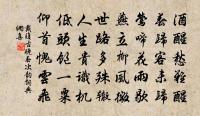 酒醒愁難醒
春歸客未歸
鶯啼花雨歇
燕立柳風微
世路多殊轍
人生貴識機
低頭一粟
仰首愧雲飛